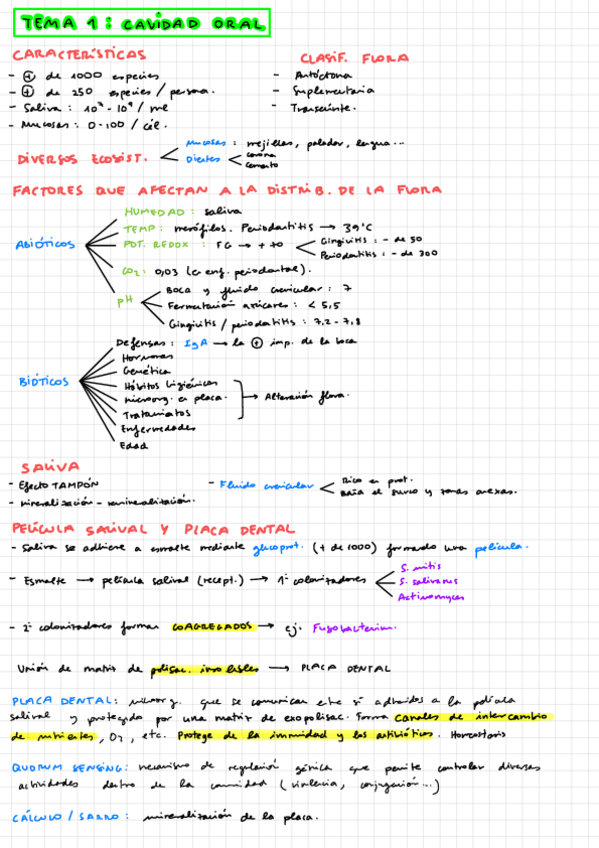 TEMA 1: CAVIDAD ORAL
CARACTERÍSTICAS
- ⊕ de 1000 especies
- ⊕ de 250 especies / persona.
- Saliva: / ml
- Mucosas: 0-100 / cél.
CLASIF. FLORA
- Autóctona
- Suplementaria
- Transeúnte.
DIVERSOS ECOSIST.
Mucosas: mejillas, paladar, lengua...
Dientes
corona
cemento
FACTORES QUE AFECTAN A LA DISTRIB. DE LA FLORA
ABIÓTICOS
HUMEDAD: saliva
TEMP: mesófilos. Periodontitis → 39°C
POT. REDOX: FG → + 70
Gingivitis: - de 50
Periodontitis: - de 300
CO2: 0,03 (c enf. periodontal).
pH
Boca y fluido crevicular: 7
Fermentación azúcares: < 5,5
Gingivitis / periodontitis: 7,2 - 7,8
BIÓTICOS
Defensas: IgA → la ⊕ imp. de la boca
Hormonas
Genética
Hábitos higiénicos
Microorg. en placa.
Tratamientos
→ Alteración flora.
Enfermedades
Edad
SALIVA
- Efecto TAMPÓN
- Mineralización - remineralización.
- Fluido crevicular
Rico en prot.
Baña el surco y zonas anexas.
PELÍCULA SALIVAL Y PLACA DENTAL
- Saliva se adhiere a esmalte mediante glucoprot. (+ de 1000) formando una película.
- Esmalte → película salival (recept.) → 1º colonizadores
S. mitis
S. salivarius
Actinomyces
- 2º colonizadores forman COAGREGADOS → ej. Fusobacterium.
Unión de matriz de polisac. insolubles → PLACA DENTAL
PLACA DENTAL: microorg. que se comunican entre sí adheridos a la película
salival y protegido por una matriz de exopolisac. Forma canales de intercambio
de nutrientes, O2, etc. Protege de la inmunidad y los antibióticos. Homeostasis
QUORUM SENSING: mecanismo de regulación génica que permite controlar diversas
actividades dentro de la comunidad (virulencia, conjugación...)
CÁLCULO / SARRO: mineralización de la placa.